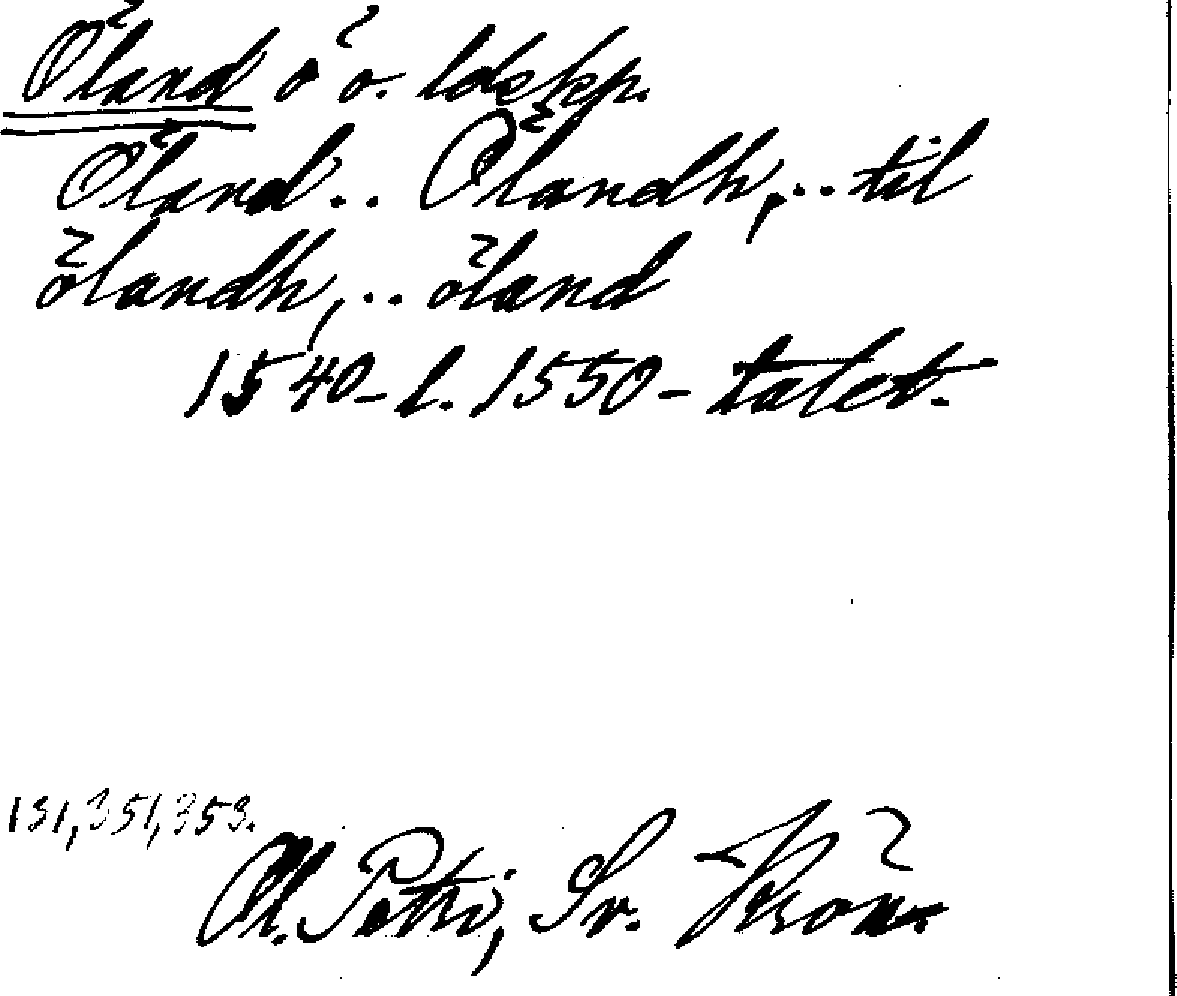 Öland ö o. ldskp.
Öland .. Ölandh, .. til
ölandh, .. öland
1540- l. 1550-talet.
131, 351, 353.
Ol. Petri, Sv. Krön.